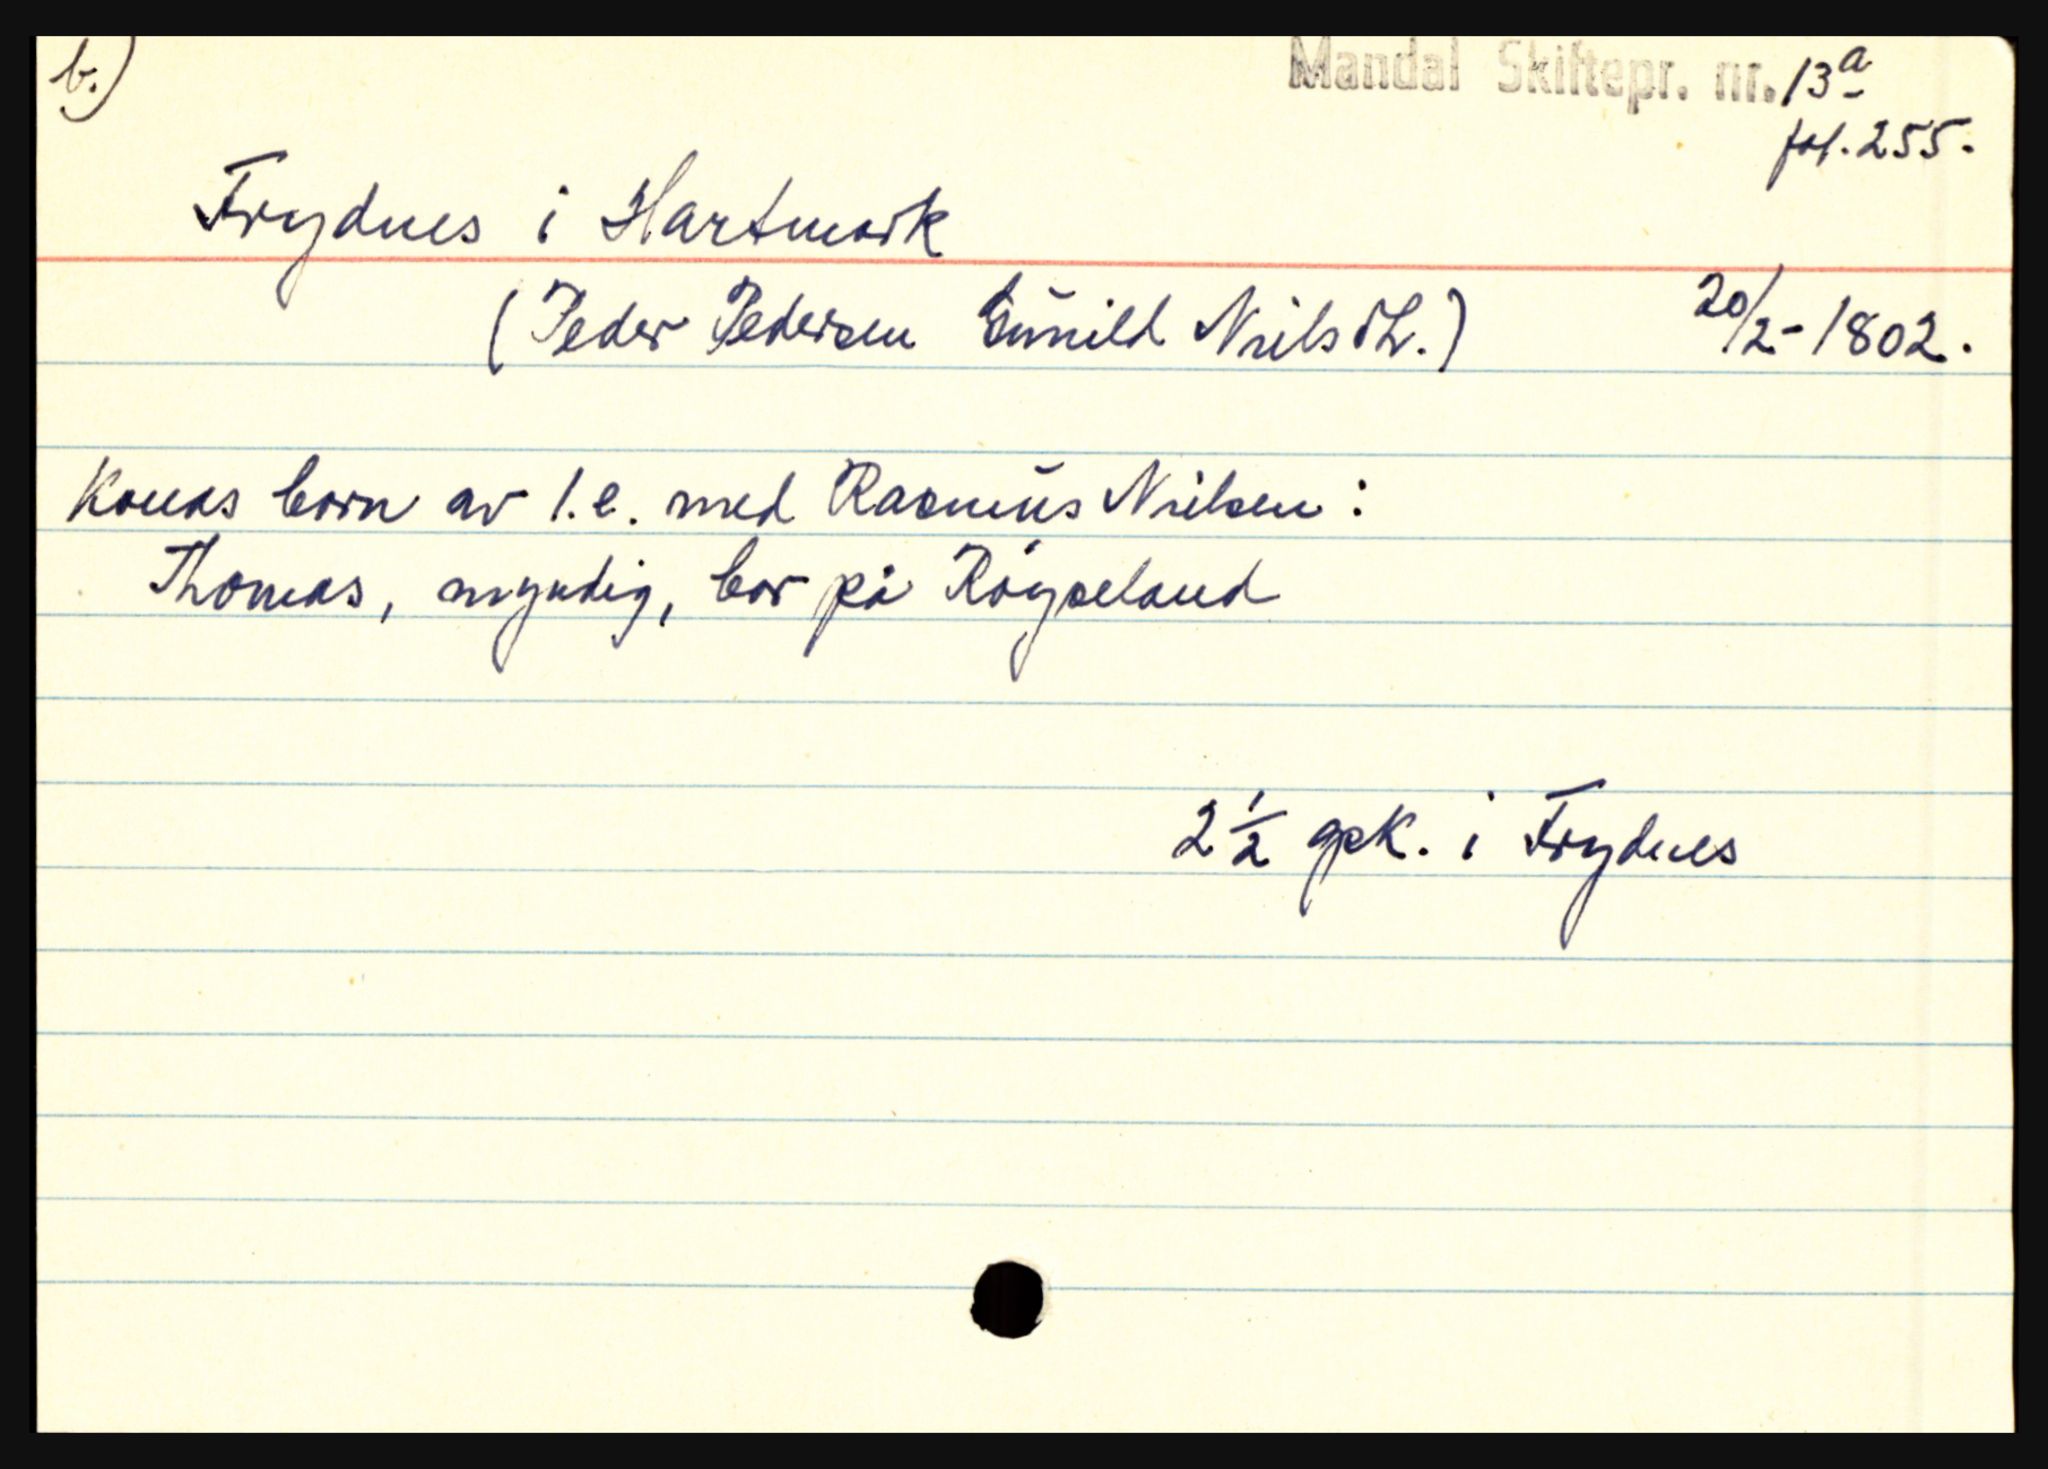 b.)
Mandal Skiftepr. nr. 13a
fol. 255.
Frydnes i Hartmark
(Peder Pedersen Gunild Nielsdt.) 20/2-1802.
Konas born av 1. e. med Rasmus Nielsen:
Thomas, myndig, bor på Røyseland
2 1/2 gsk. i Frydnes